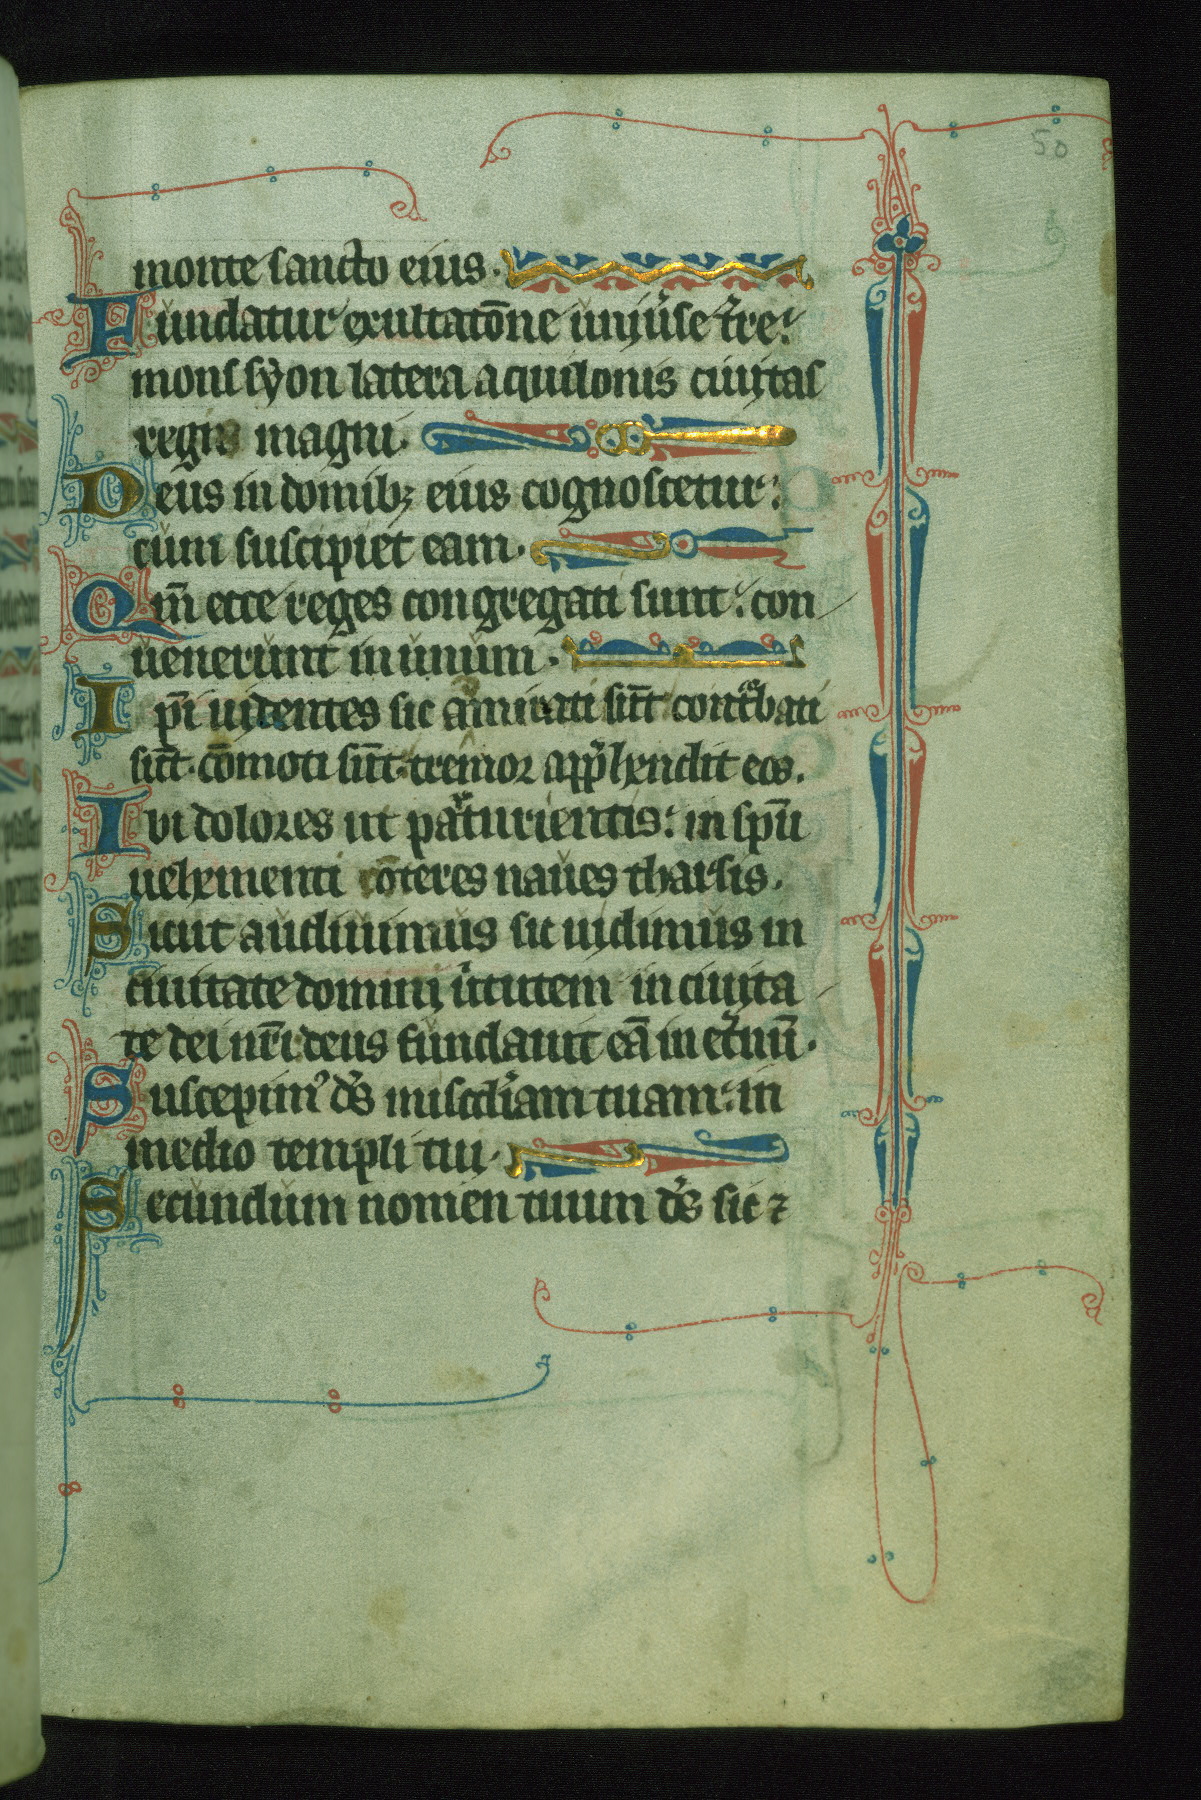 50
monte sancto eius.
Fundatur exultatōne uniu̕se t̕re:
mons syon latera aquilonis ciuitas
regis magni.
Deus in domibꝫ eius cognoscetur:
cum suscipiet eam.
Qm̄ ecce reges congregati sunt: con
uenerunt in unum.
Ip̄i uidentes sic amirati sūt contᵃbati
sūt. cōmoti sūt. tremor app̕hendit eos.
Ibi dolores ut paᵃturientis: in spū
uehementi cōteres naues tharsis.
Sicut audiuimus sic uidimus in
ciuitate domini u̕tutem in ciuita
te dei nr̄i: deus fundauit eā in et̕nū.
Suscepimꝰ ds̄ misc̄d̕iam tuam: in
medio templi tui.
Secundum nomen tuum ds̄ sic ⁊